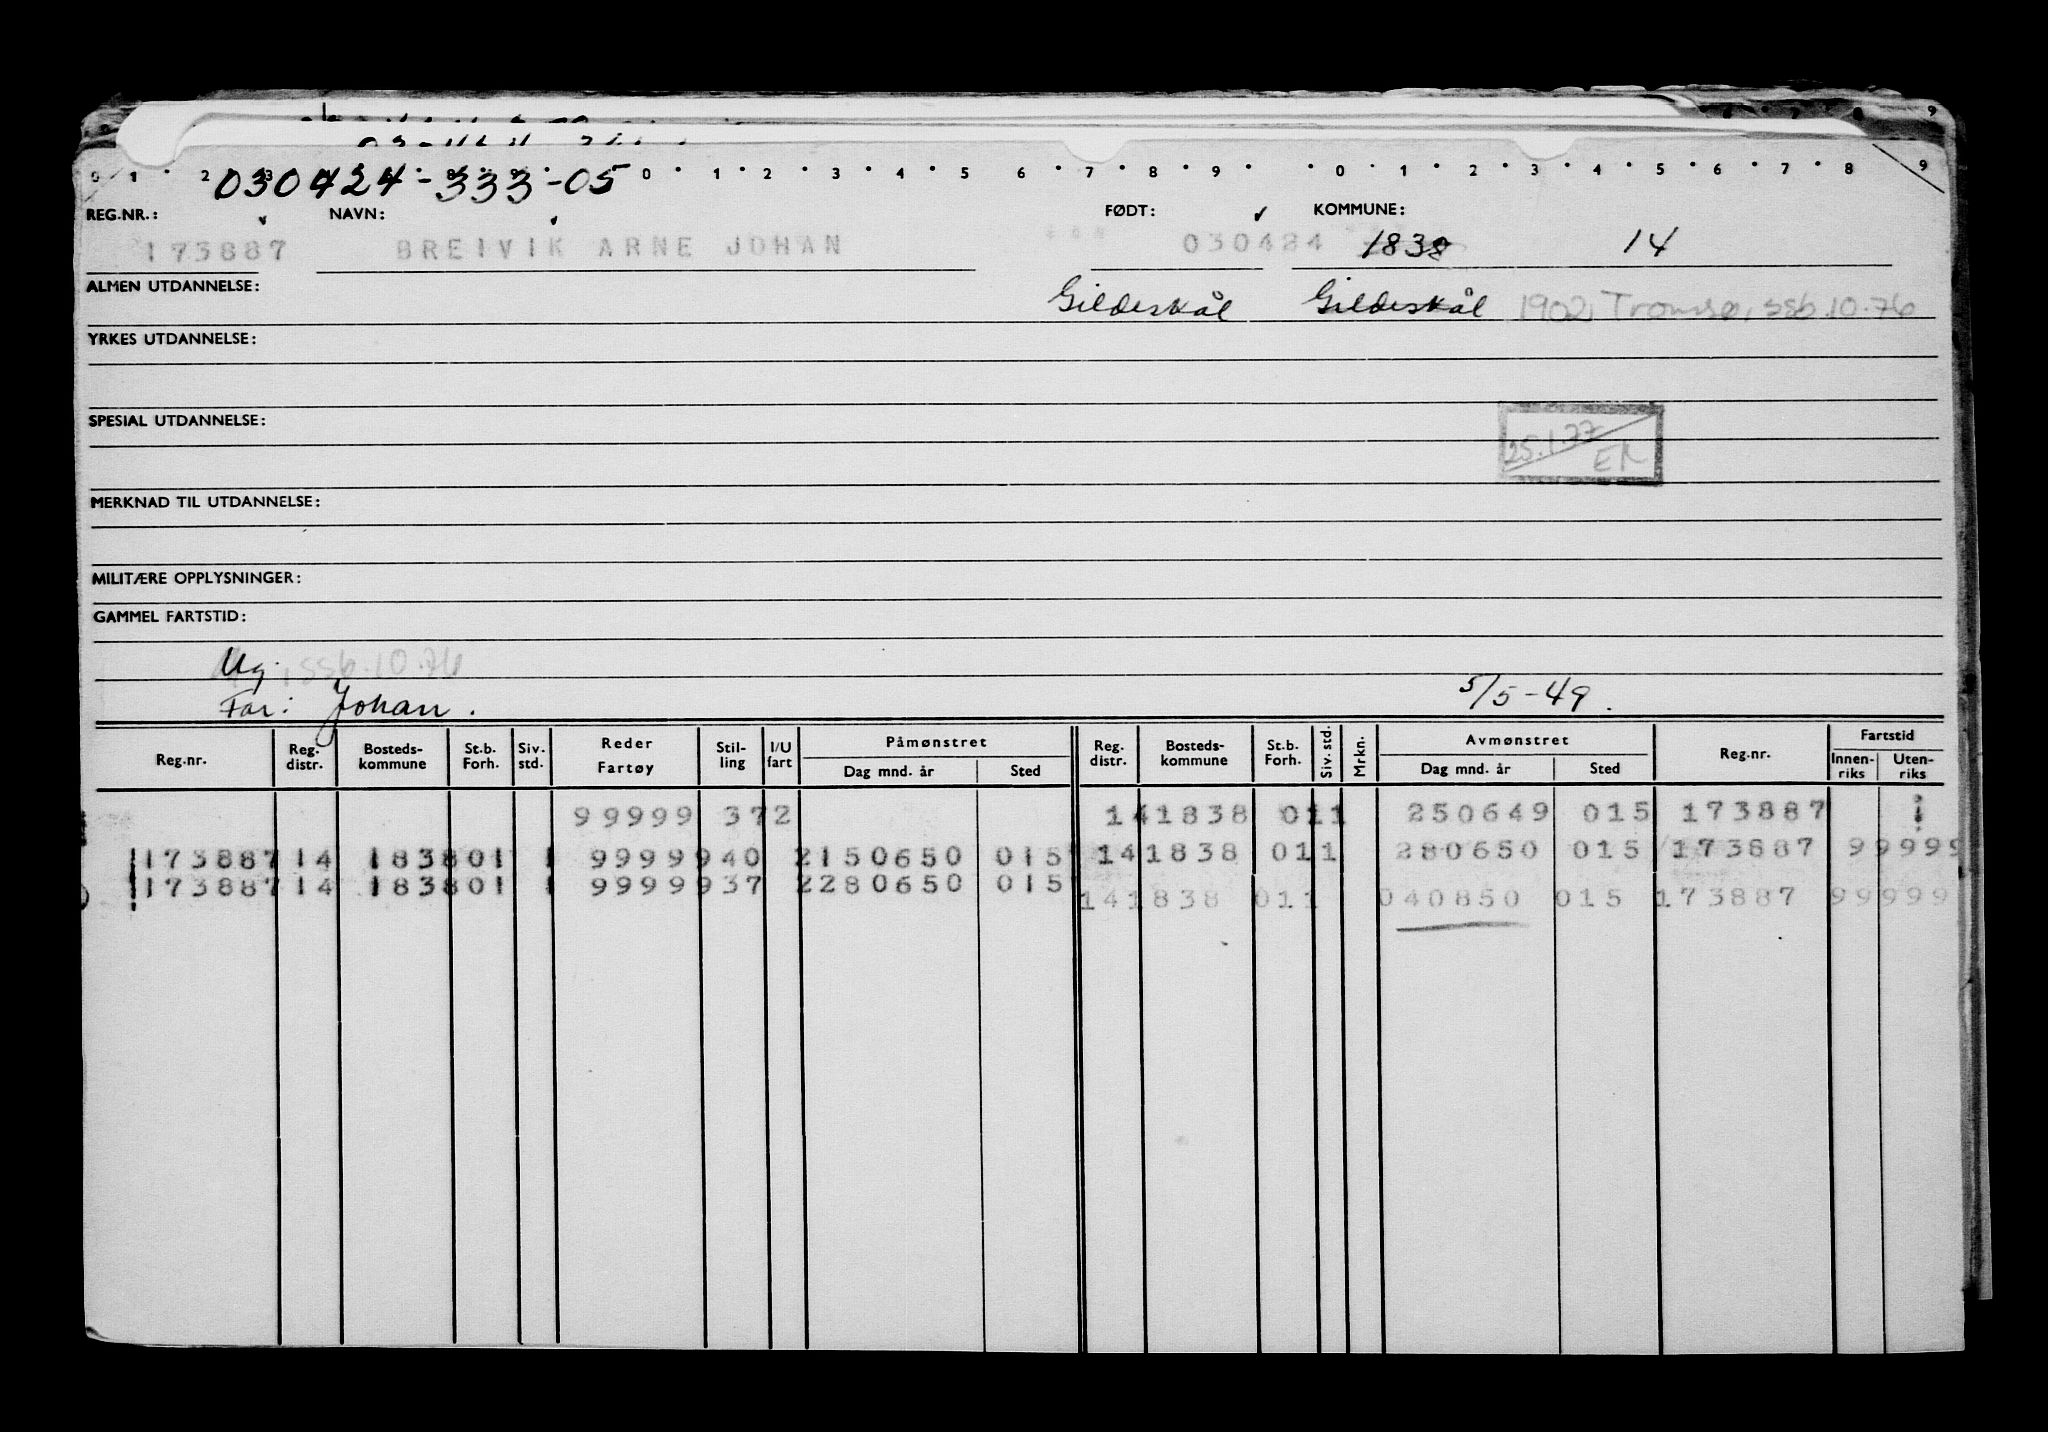 0 1 2 3 8 9 0 1 2 3 4 5 6 7 8 9 0 1 2 3 4 5 6 7 8 9
030424-333-05
REG.NR.: NAVN: FØDT: KOMMUNE:
173887 BREIVIK ARNE JOHAN 030424 1838 14
ALMEN UTDANNELSE: Gildeskål Gildeskål 1902, Tromsø, ssb.10.76
YRKES UTDANNELSE:
SPESIAL UTDANNELSE:
25.1.77
EN
MERKNAD TIL UTDANNELSE:
MILITÆRE OPPLYSNINGER:
GAMMEL FARTSTID:
Ug. , ssb.10.76
Far: Johan. 5/5-49.
Reg.nr. Reg. distr. Bosteds-kommune St.b. Forh. Siv. std. Reder Fartøy Stil-ling I/U fart Påmønstret Dag mnd. år Sted Reg. distr. Bosteds-kommune St.b. Forh. Siv. std. Mrkn. Avmønstret Dag mnd. år Sted Reg.nr. Fartstid Innen-riks Uten-riks
99999 372 141838 011 250649 015 173887
173887 14 183801 1 9999940 2150650 015 141838 011 280650 015 173887 99999
173887 14 183801 1 9999937 2280650 015
141838 011 040850 015 173887 99999